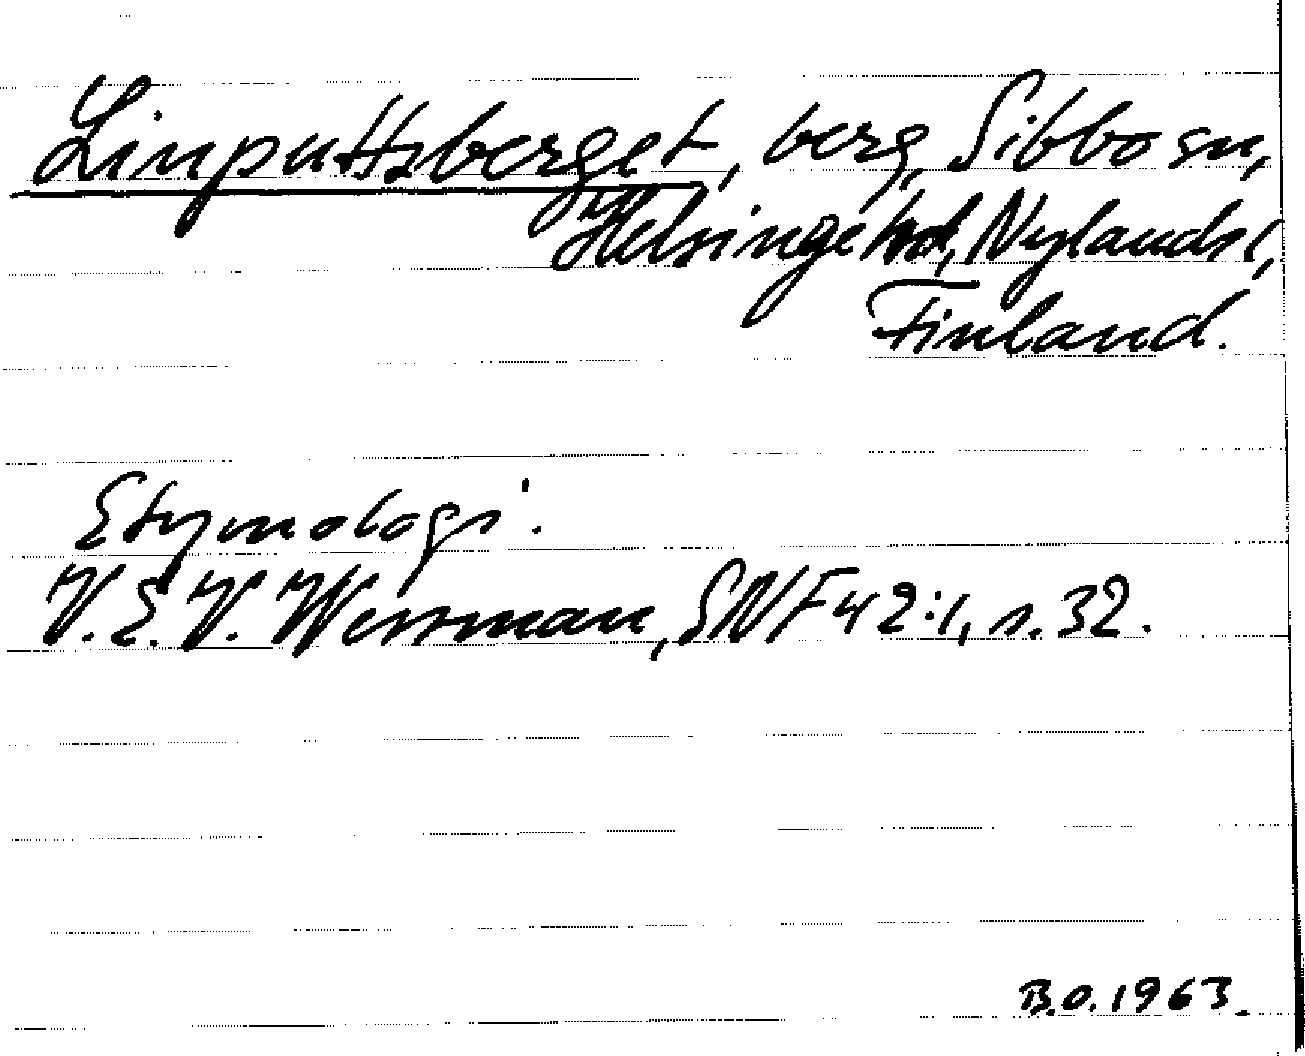 Linputtsberget, berg, Sibbo sn,
Helsinge hd, Nylands l,
Finland.
Etymologi.
V. E. V. Wessman, SNF 42:1, s. 32.
B.O. 1963.